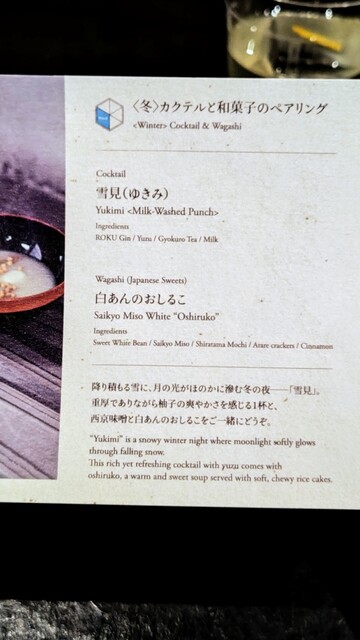 〈冬〉カクテルと和菓子のペアリング
<Winter> Cocktail & Wagashi
Cocktail
雪見(ゆきみ)
Yukimi <Milk-Washed Punch>
Ingredients
ROKU Gin / Yuzu / Gyokuro Tea / Milk
Wagashi (Japanese Sweets)
白あんのおしるこ
Saikyo Miso White "Oshiruko"
Ingredients
Sweet White Bean / Saikyo Miso / Shiratama Mochi / Arare crackers / Cinnamon
降り積もる雪に、月の光がほのかに滲む冬の夜――「雪見」。
重厚でありながら柚子の爽やかさを感じる1杯と、
西京味噌と白あんのおしるこをご一緒にどうぞ。
"Yukimi" is a snowy winter night where moonlight softly glows
through falling snow.
This rich yet refreshing cocktail with yuzu comes with
oshiruko, a warm and sweet soup served with soft, chewy rice cakes.